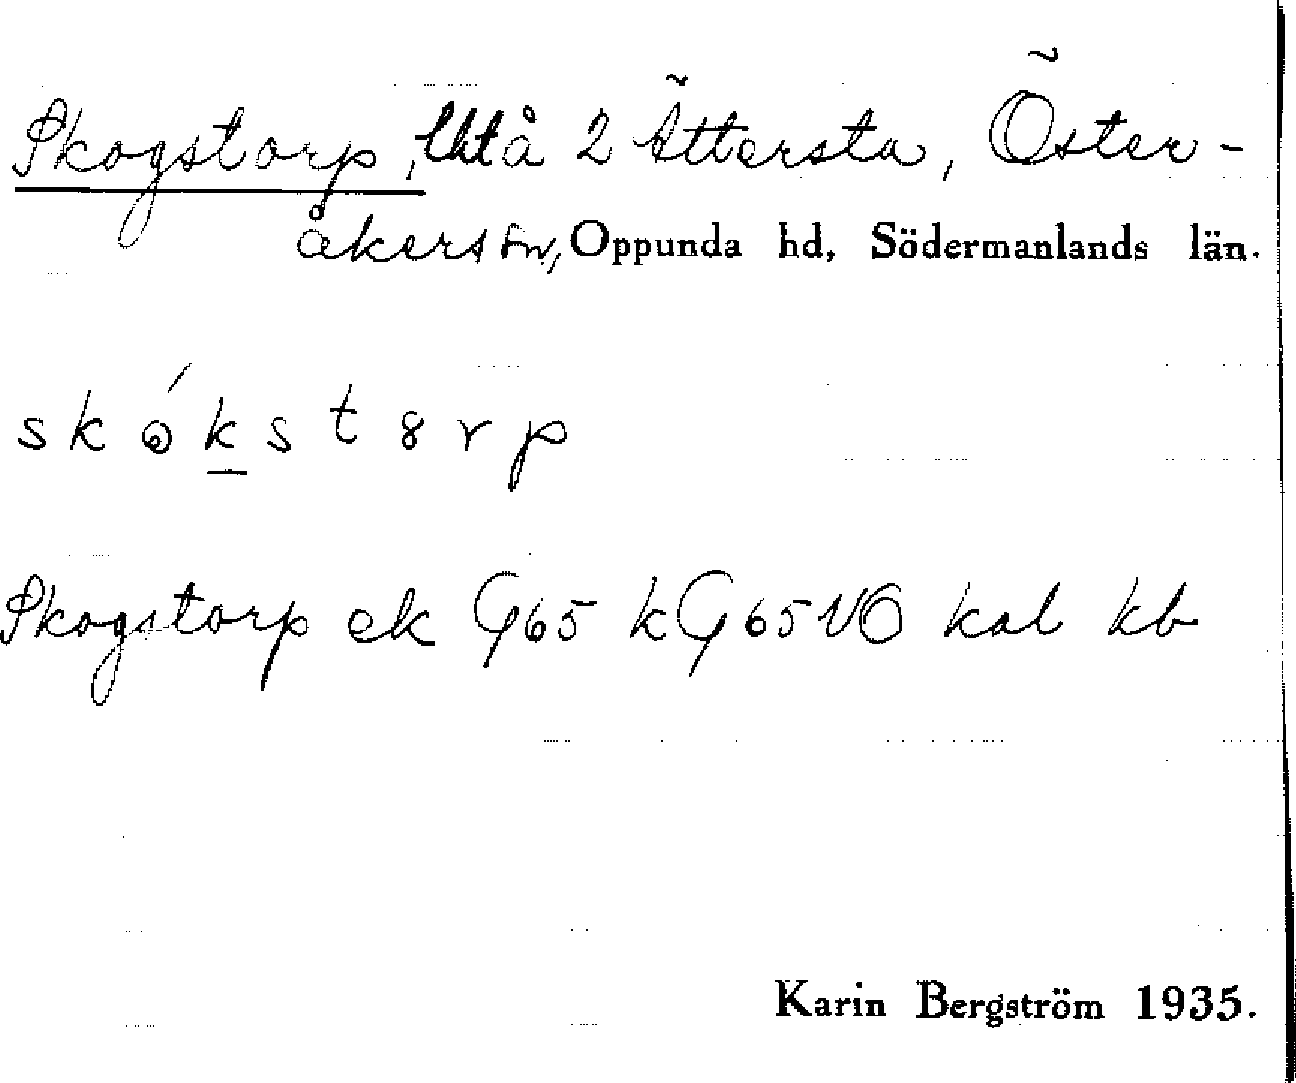 Skogstorp, lht å 2 Ättersta, Öster-
åkers sn, Oppunda hd, Södermanlands län.
skókstȣrp
Skogstorp ek G65 kG65 VÖ kal kb
Karin Bergström 1935.